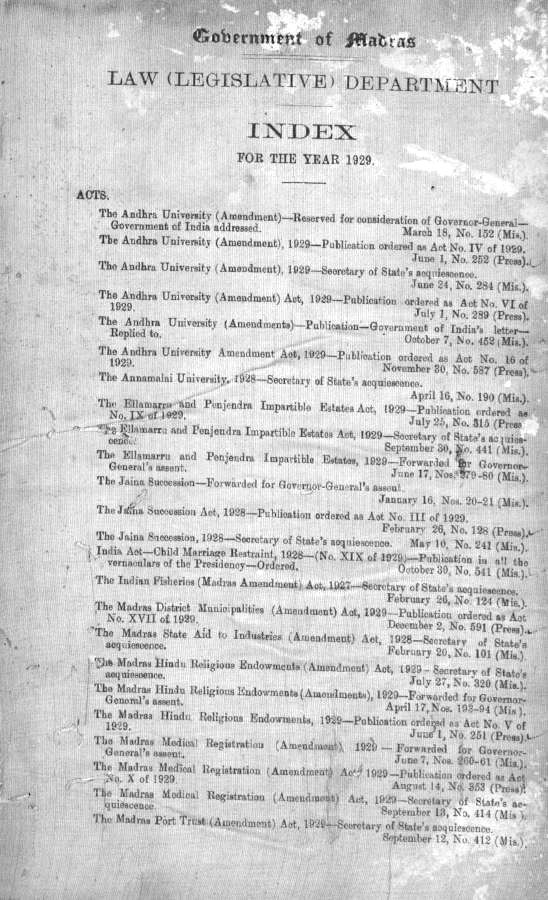 Government of Madras
LAW (LEGISLATIVE) DEPARTMENT
INDEX
FOR THE YEAR 1929.
ACTS.
The Andhra University (Amendment)—Reserved for consideration of Governor-General—
Government of India addressed. March 18, No. 152 (Mis.).
The Andhra University (Amendment), 1929—Publication ordered as Act No. IV of 1929.
June 1, No. 252 (Press).
The Andhra University (Amendment), 1929—Secretary of State's acquiescence.
June 24, No. 284 (Mis.).
The Andhra University (Amendment) Act, 1929—Publication ordered as Act No. VI of
1929. July 1, No. 289 (Press).
The Andhra University (Amendments)—Publication—Government of India's letter—
Replied to. October 7, No. 452 (Mis.).
The Andhra University Amendment Act, 1929—Publication ordered as Act No. 16 of
1929. November 30, No. 587 (Press).
The Annamalai University, 1928—Secretary of State's acquiescence.
April 16, No. 190 (Mis.).
The Ellamarru and Penjendra Impartible Estates Act, 1929—Publication ordered as
No. IX of 1929. July 25, No. 315 (Press
The Ellamarru and Penjendra Impartible Estates Act, 1929—Secretary of State's acquies-
cence. September 30, No. 441 (Mis.).
The Ellamarru and Penjendra Impartible Estates, 1929—Forwarded for Governor-
General's assent. June 17, Nos. 279-80 (Mis.).
The Jaina Succession—Forwarded for Governor-General's assent.
January 16, Nos. 20-21 (Mis.).
The Jaina Succession Act, 1928—Publication ordered as Act No. III of 1929.
February 26, No. 128 (Press).
The Jaina Succession, 1928—Secretary of State's acquiescence. May 10, No. 241 (Mis.).
India Act—Child Marriage Restraint, 1928—(No. XIX of 1929)—Publication in all the
vernaculars of the Presidency—Ordered. October 30, No. 541 (Mis.).
The Indian Fisheries (Madras Amendment) Act, 1927—Secretary of State's acquiescence.
February 26, No. 124 (Mis.).
The Madras District Municipalities (Amendment) Act, 1929—Publication ordered as Act
No. XVII of 1929. December 2, No. 591 (Press).
The Madras State Aid to Industries (Amendment) Act, 1928—Secretary of State's
acquiescence. February 20, No. 101 (Mis.).
The Madras Hindu Religious Endowments (Amendment) Act, 1929—Secretary of State's
acquiescence. July 27, No. 320 (Mis.).
The Madras Hindu Religious Endowments (Amendments), 1929—Forwarded for Governor-
General's assent. April 17, Nos. 193-94 (Mis.).
The Madras Hindu Religious Endowments, 1929—Publication ordered as Act No. V of
1929. June 1, No. 251 (Press).
The Madras Medical Registration (Amendment), 1929—Forwarded for Governor-
General's assent. June 7, Nos. 260-61 (Mis.).
The Madras Medical Registration (Amendment) Act 1929—Publication ordered as Act
No. X of 1929. August 14, No. 353 (Press).
The Madras Medical Registration (Amendment) Act, 1929—Secretary of State's ac-
quiescence. September 13, No. 414 (Mis.).
The Madras Port Trust (Amendment) Act, 1929—Secretary of State's acquiescence.
September 12, No. 412 (Mis.).